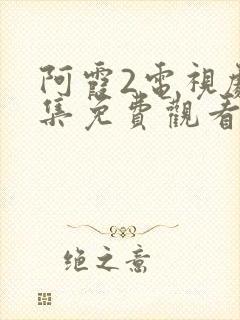 阿霞2電視
集免費觀看
绝之意